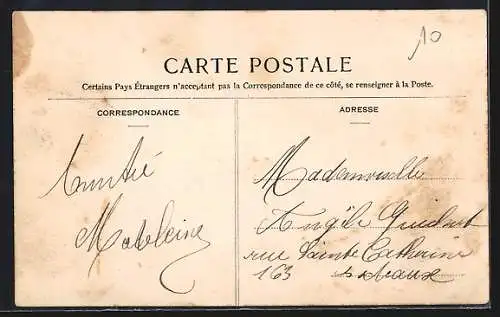 10
CARTE POSTALE
Certains Pays Étrangers n'acceptant pas la Correspondance de ce côté, se renseigner à la Poste.
CORRESPONDANCE
ADRESSE
Amitié
Madeleine
Mademoiselle
Angèle
rue Sainte Catherine
163